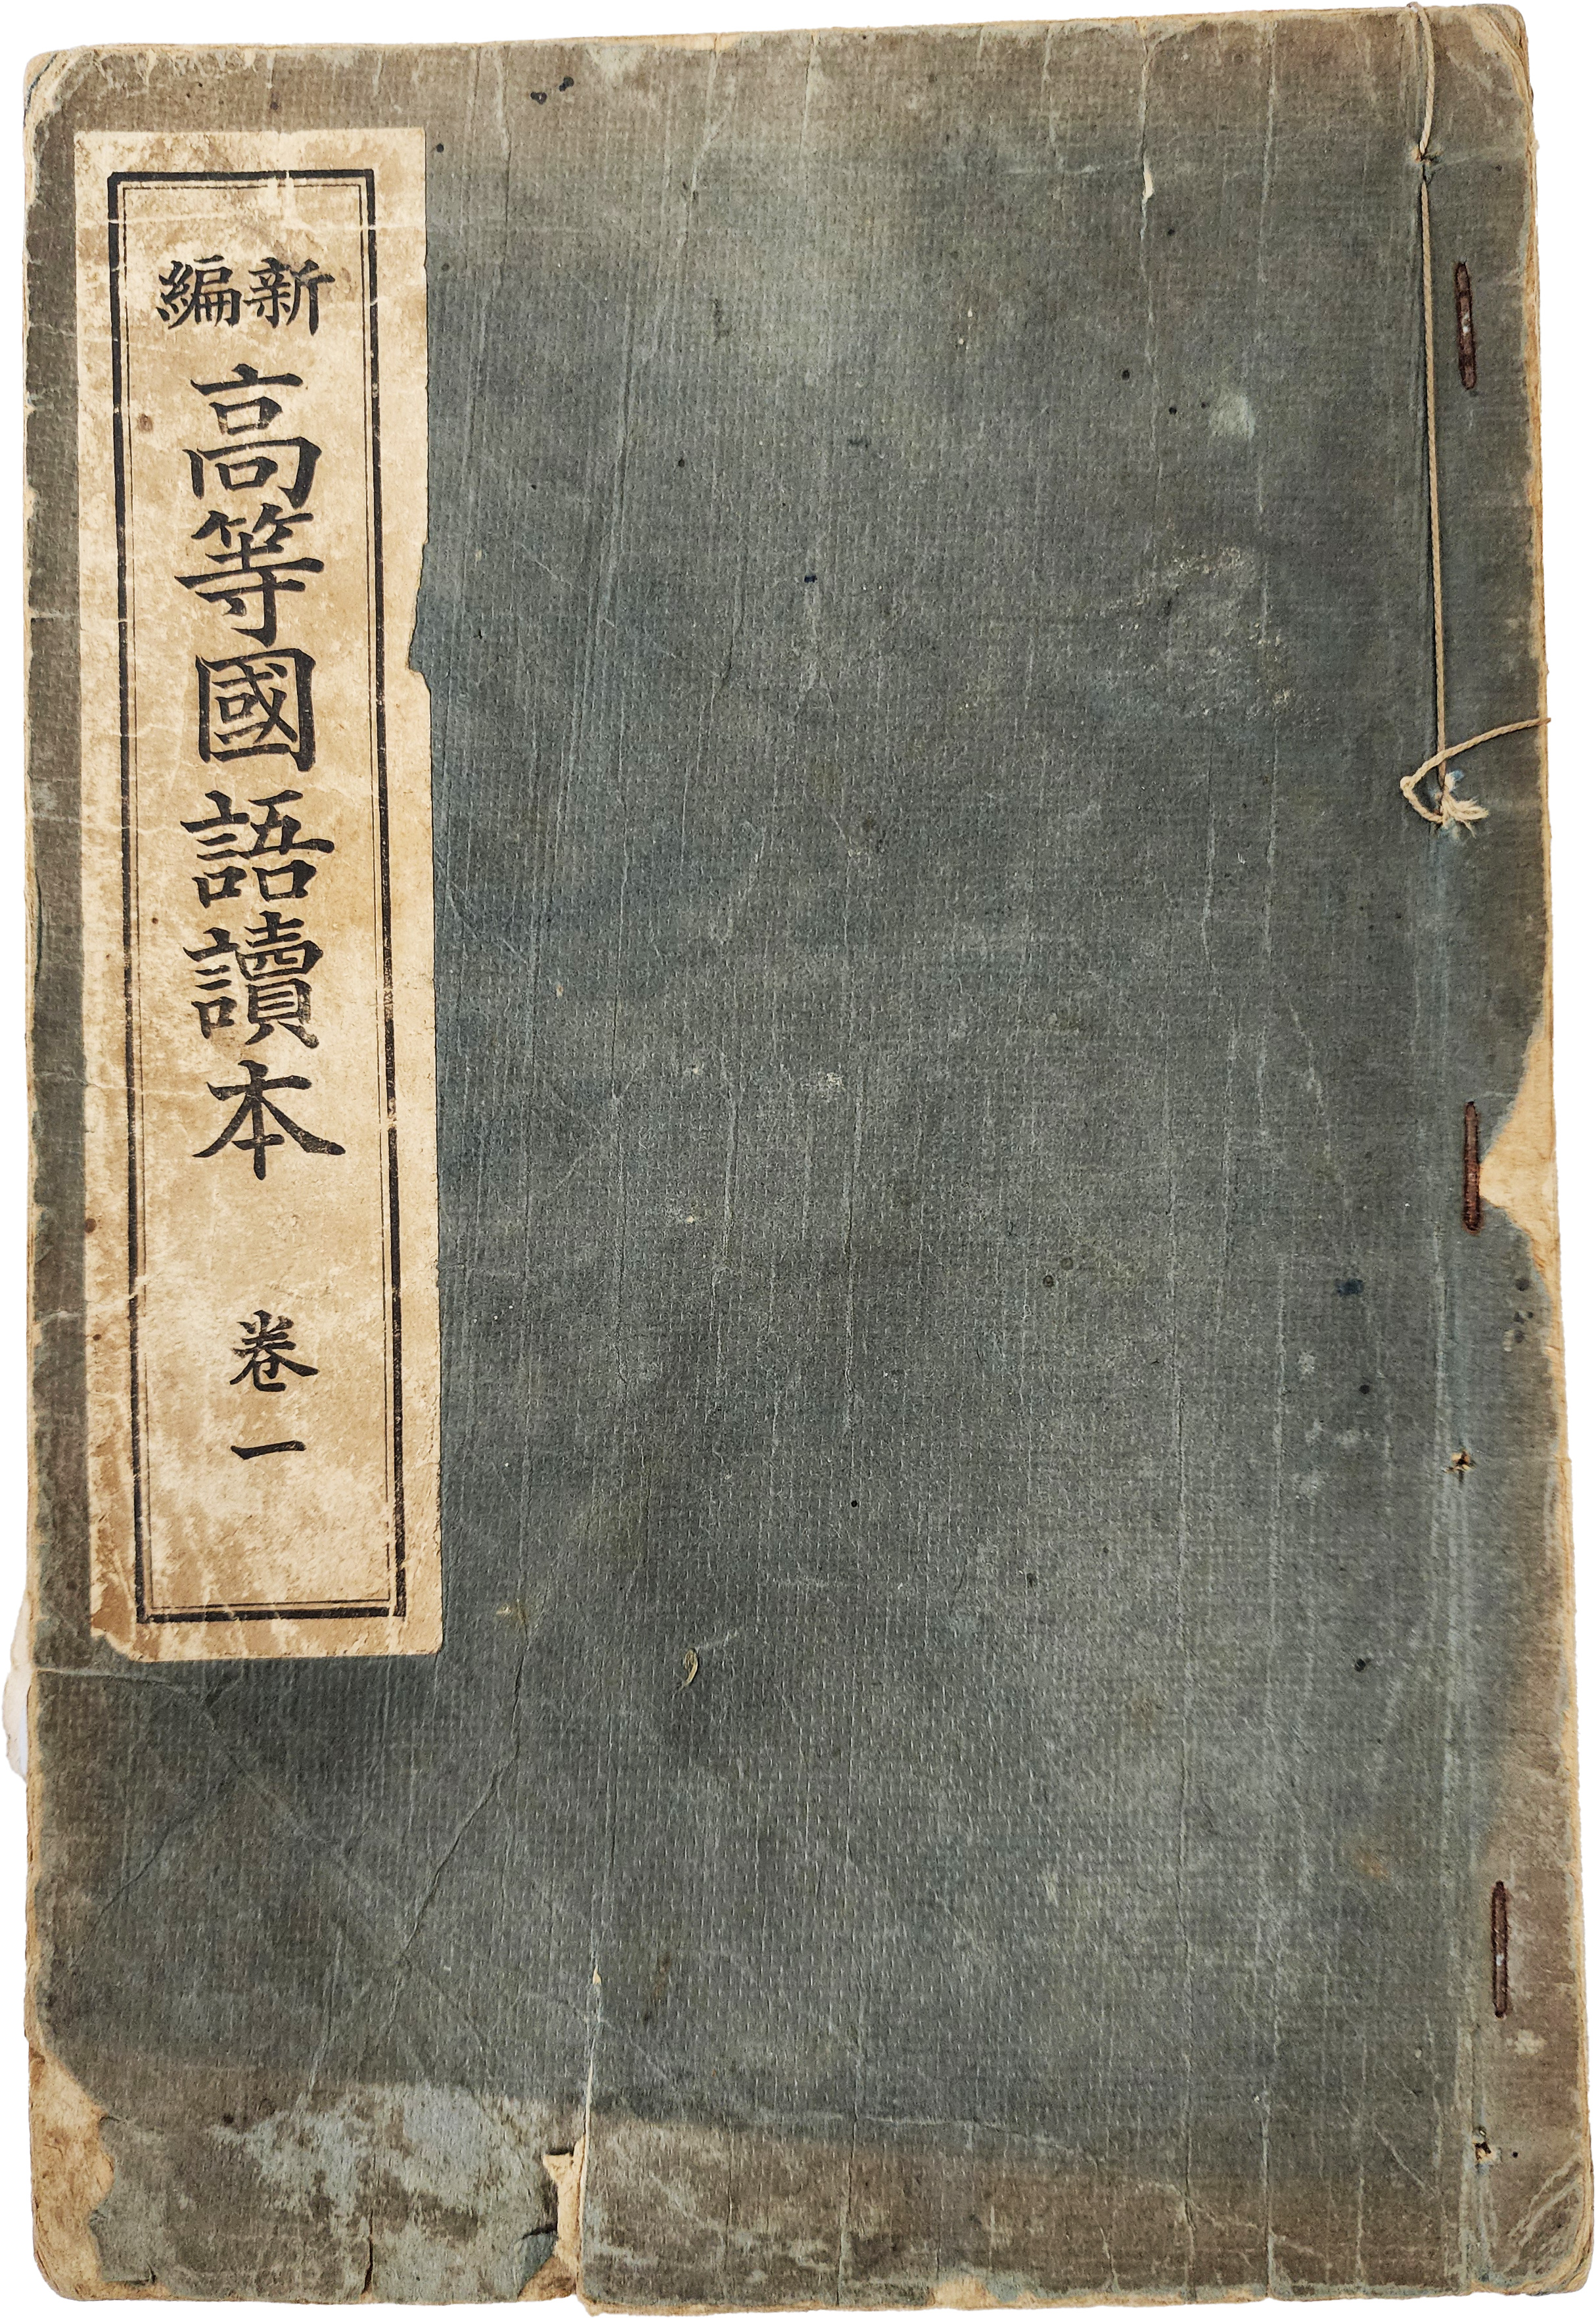 新編
高等國語讀本
卷一